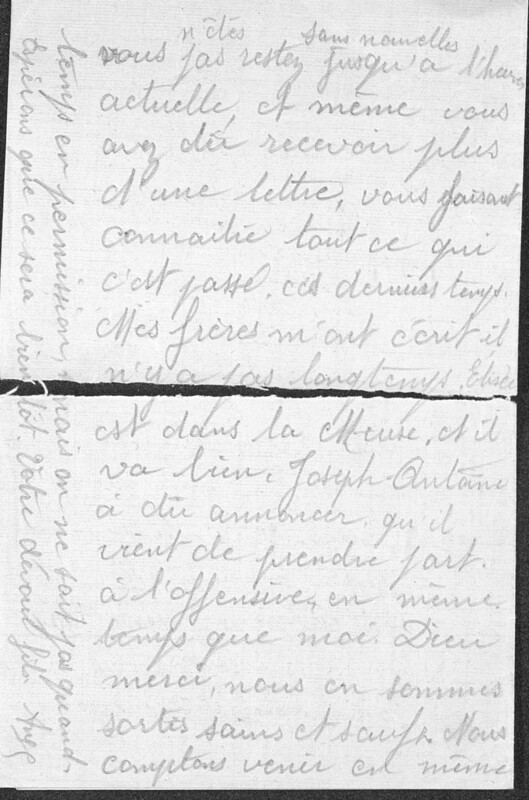 n'êtes sans nouvelles
vous pas restez jusqu'à l'heure
actuelle, et même vous
avez dû recevoir plus
d'une lettre, vous faisant
connaitre tout ce qui
c'est passé, ces derniers temps.
Mes frères m'ont écrit il
n'y a pas longtemps. Elisée
est dans la Meuse, et il
va bien. Joseph-Antoine
à dû annoncer qu'il
vient de prendre part
à l'offensive, en même
temps que moi. Dieu
merci, nous en sommes
sortis sains et saufs. Nous
comptons venir en même
temps en permission, mais on ne sait pas quand.
Espérons que ce sera bientôt. Votre dévoué fils.